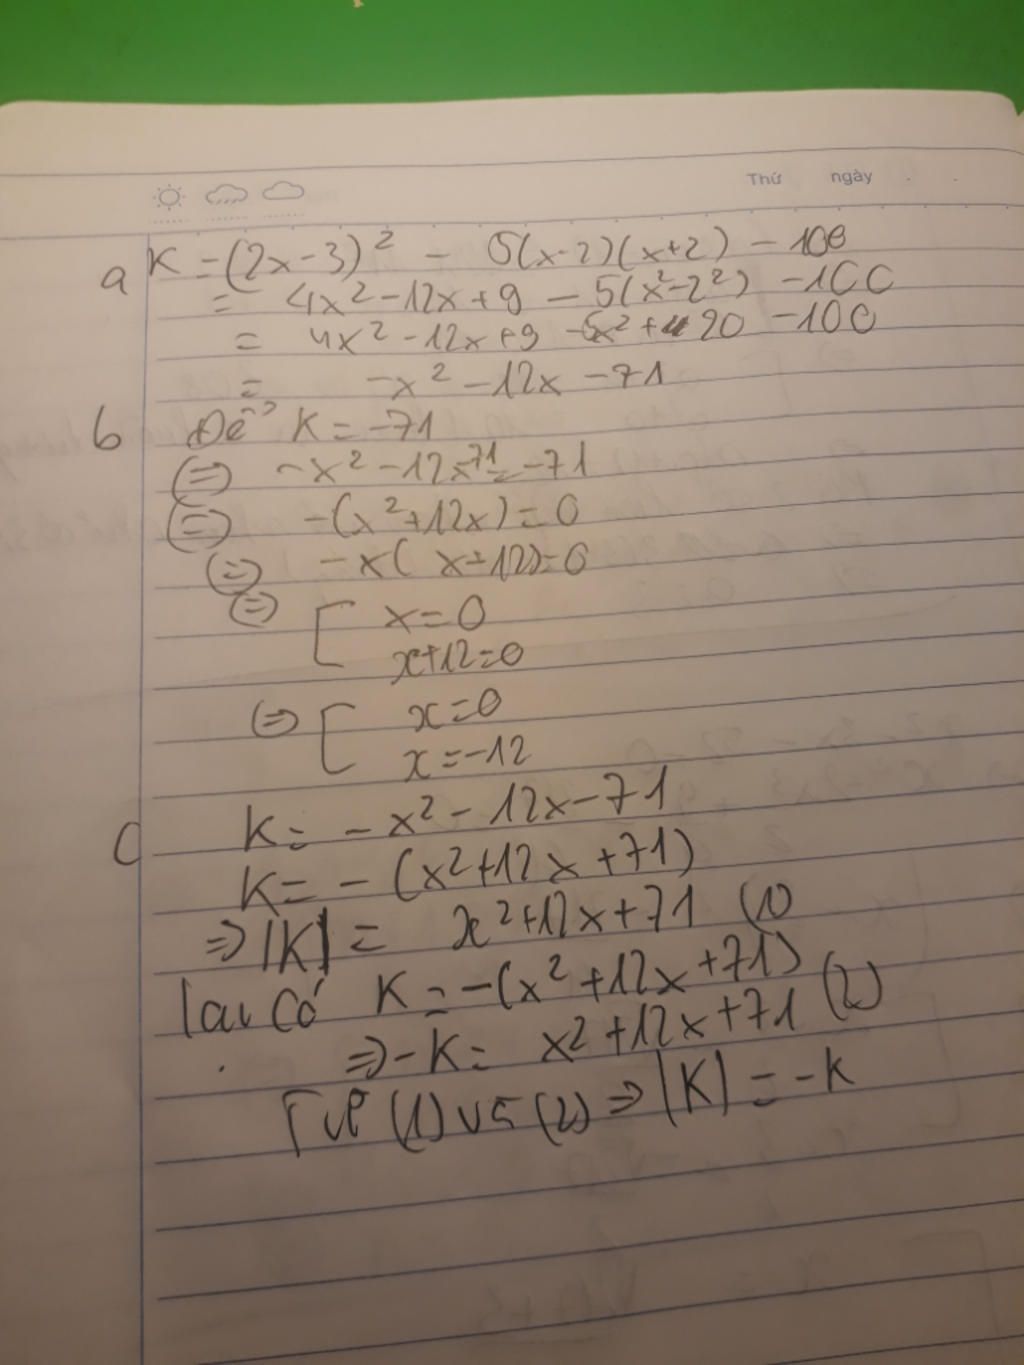 Thứ ngày
a K = (2x-3)² - 5(x-2)(x+2) - 100
= 4x² - 12x + 9 - 5(x² - 2²) - 100
= 4x² - 12x + 9 - 5x² + 20 - 100
= -x² - 12x - 71
b Để K = -71
⇔ -x² - 12x - 71 = -71
⇔ -(x² + 12x) = 0
⇔ -x(x+12) = 0
⇔ [ x = 0
x+12 = 0
⇔ [ x = 0
x = -12
C K = -x² - 12x - 71
K = -(x² + 12x + 71)
⇒ |K| = x² + 12x + 71 (1)
Lại có K = -(x² + 12x + 71)
⇒ -K = x² + 12x + 71 (2)
Từ (1) và (2) ⇒ |K| = -K